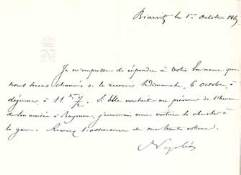 Biarritz le 1er Octobre 18
Je m'empresse de répondre à Votre
que nous serons charmés de la recevoir Dimanche, 6 octobre, à
déjeuner à 11h 1/2. Si Elle voulait me prévenir de l'heure
de son arrivée à Bayonne, j'enverrais une voiture la chercher à
la gare. Recevez l'assurance de ma haute estime.
Napoléon